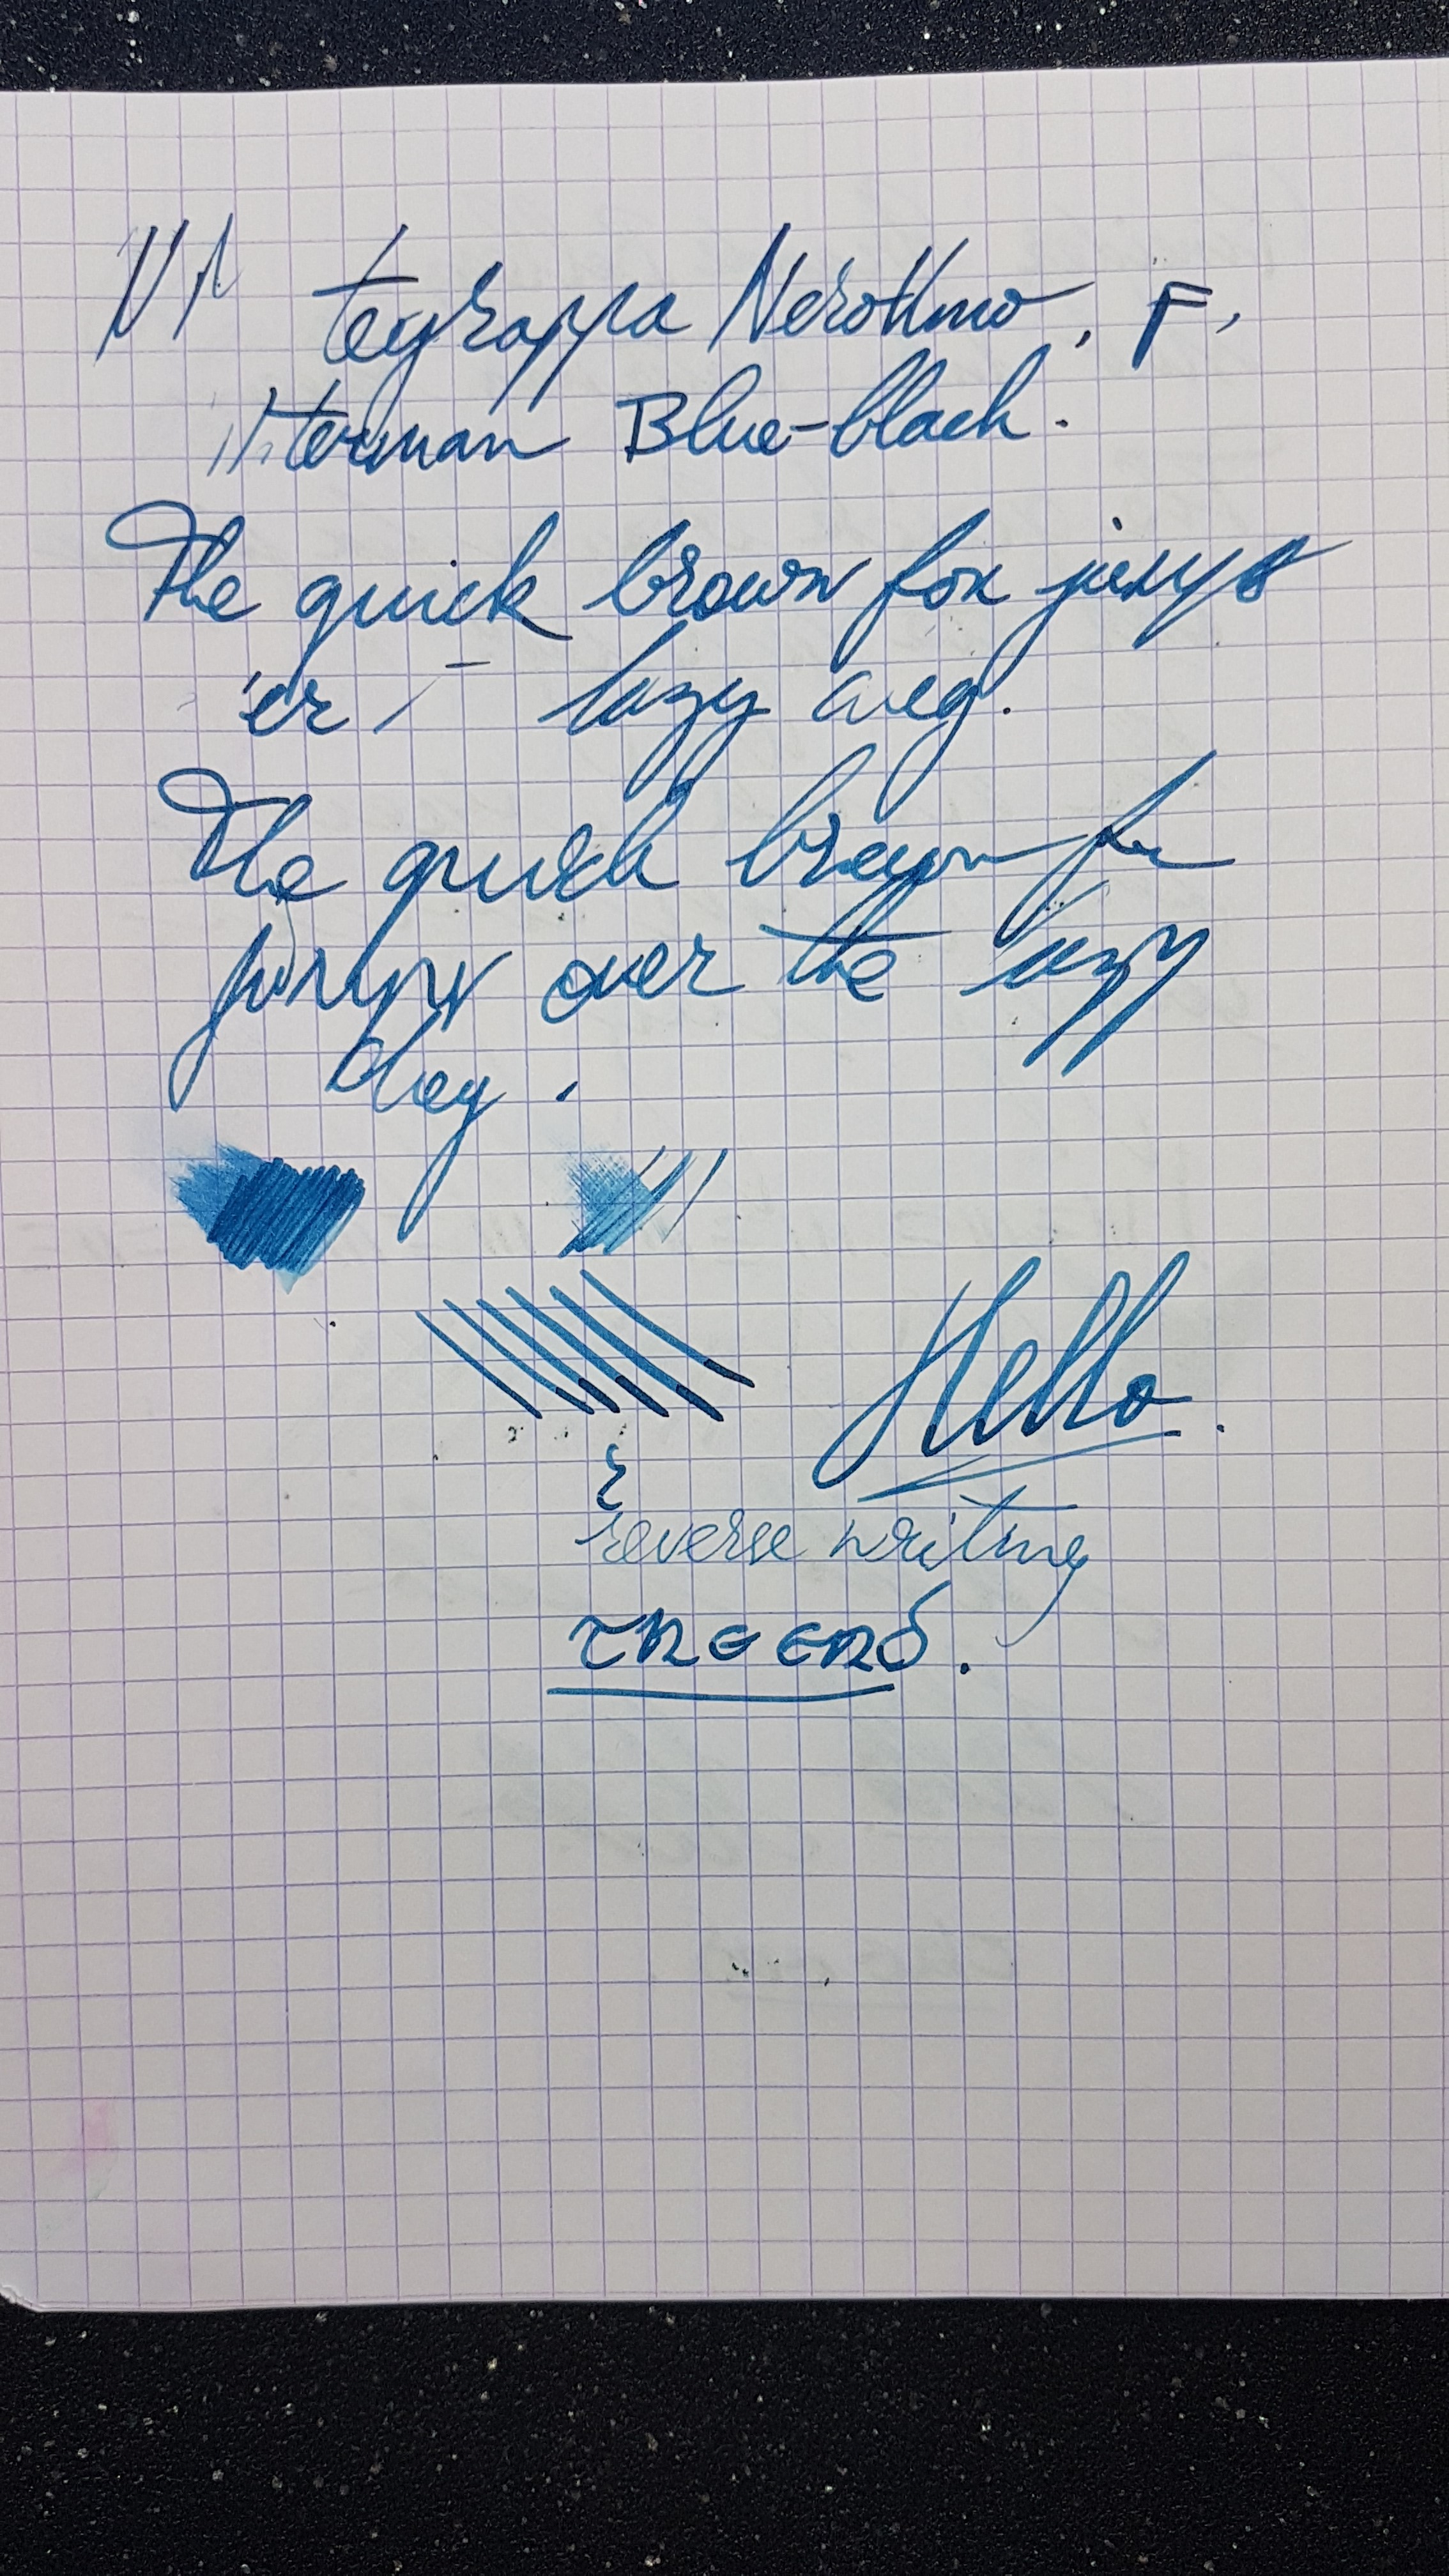 tegrappa NeroUno, F,
terman Blue-black.
The quick brown fox jumps
er lazy
The quick brown fox
jumps over the lazy
dog.
Hello.
reverse writing
The end.